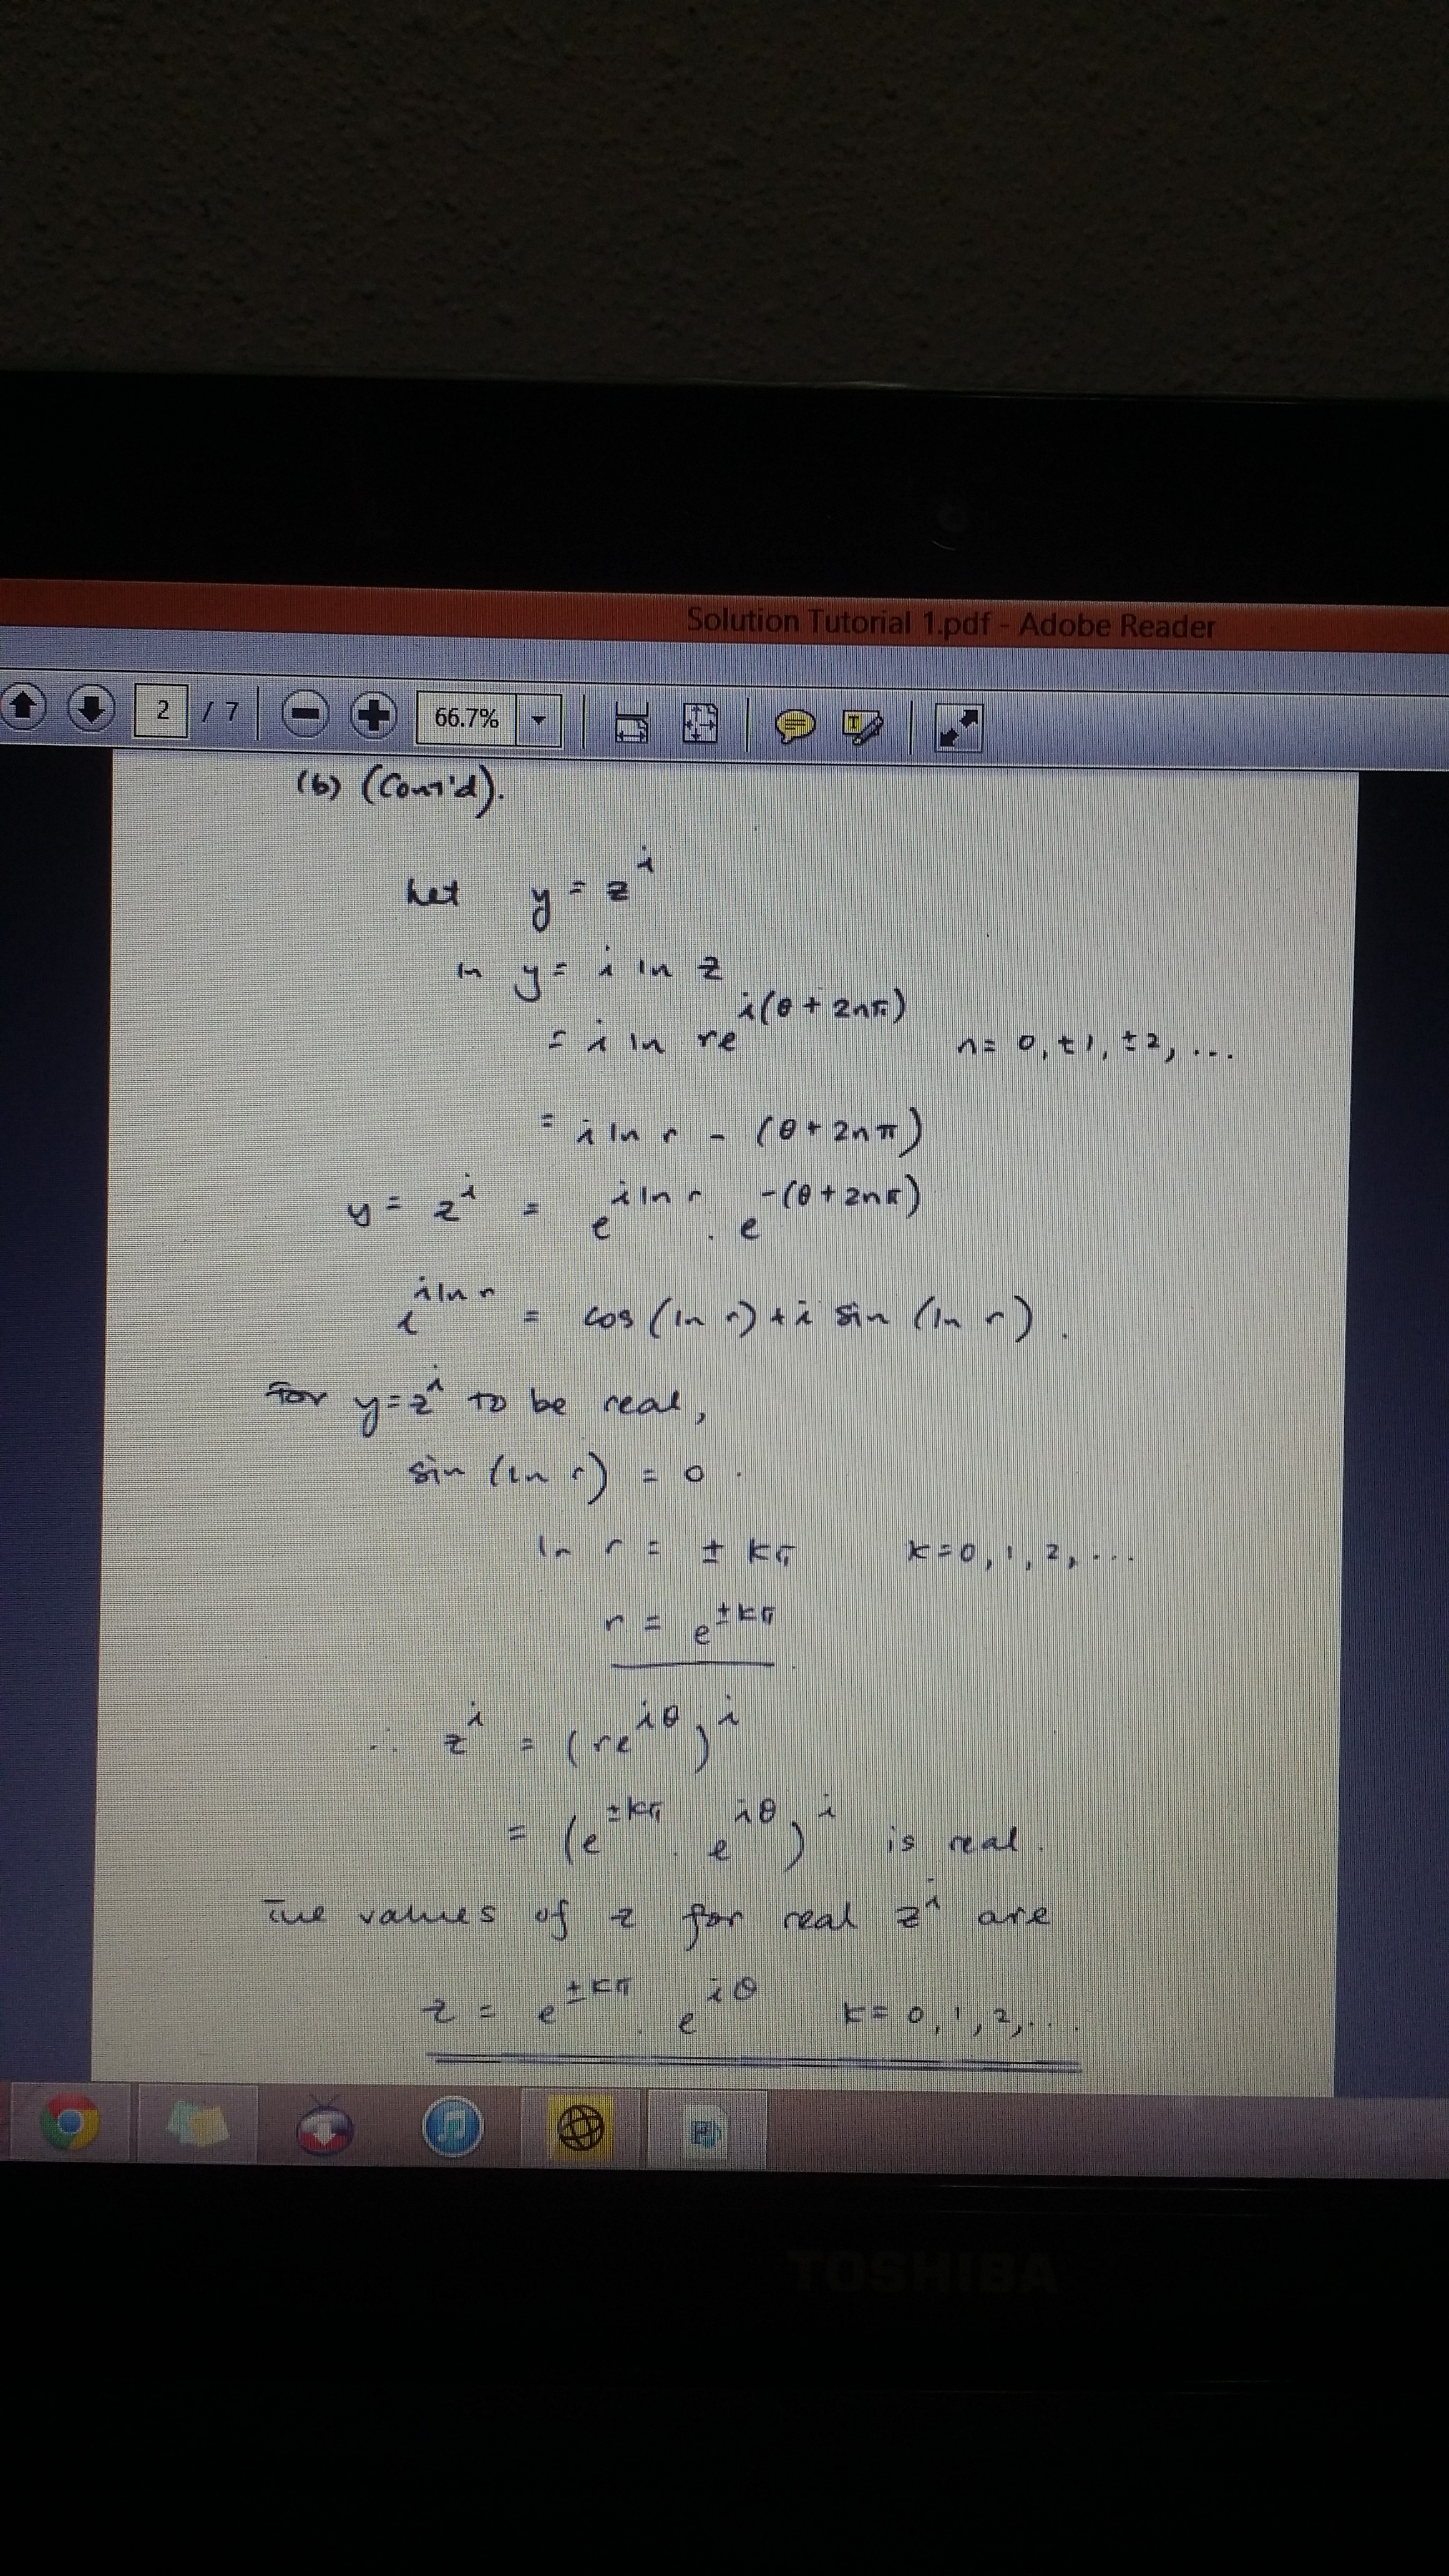 Solution Tutorial 1.pdf - Adobe Reader
2 / 7 66.7%
(b) (Cont'd).
Let y = z^i
ln y = i ln z
= i ln re^{i(θ + 2nπ)} n = 0, ±1, ±2, ...
= i ln r - (θ + 2nπ)
y = z^i = e^{i ln r} . e^{-(θ + 2nπ)}
e^{i ln r} = cos (ln r) + i sin (ln r).
For y = z^i to be real,
sin (ln r) = 0.
ln r = ± kπ k = 0, 1, 2, ...
r = e^{±kπ}.
∴ z^i = (re^{iθ})^i
= (e^{±kπ} . e^{iθ})^i is real.
The values of z for real z^i are
z = e^{±kπ} . e^{iθ} k = 0, 1, 2, ...
TOSHIBA